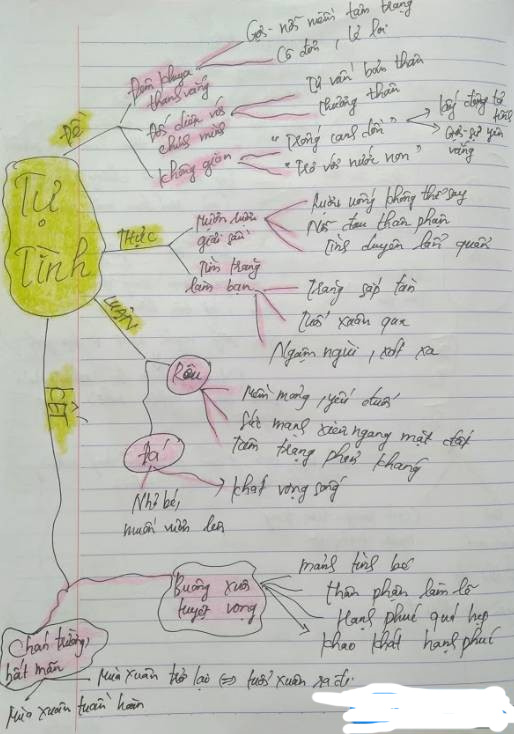 Tự
Tình
Đề
Đêm khuya
thanh vắng
Gợi - nỗi niềm tâm trạng
Cô đơn, lẻ loi
Đối diện với
chính mình
Tự vấn bản thân
thương thân
Không gian
"Trống canh dồn"
lấy động tả
tĩnh
Gợi sự yên
vắng
"Trơ với nước non"
Thực
Mượn rượu
giải sầu
Rượu uống không thể say
Nỗi đau thân phận
Tình duyên lẩn quẩn
Tìm trăng
làm bạn
Trăng sắp tàn
Tuổi xuân qua
Ngậm ngùi, xót xa
Luận
Rêu
Mềm mỏng, yếu đuối
Sức mạnh xiên ngang mặt đất
Tâm trạng phản kháng
Đá
Nhỏ bé,
muốn vươn lên
khát vọng sống
Kết
Buông xuôi
tuyệt vọng
mảnh tình bé
thân phận làm lẽ
Hạnh phúc quá hẹp
khao khát hạnh phúc
Chán trường,
bất mãn
Mùa xuân trở lại ⇔ tuổi xuân ra đi
Mùa xuân tuần hoàn